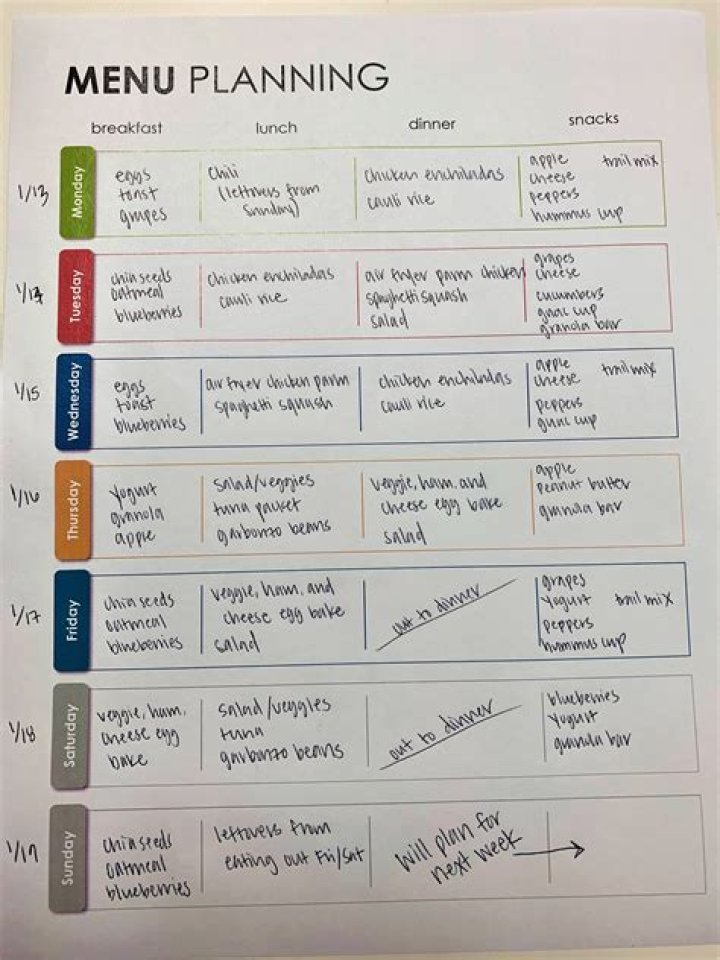 MENU PLANNING
breakfast lunch dinner snacks
1/13
Monday
eggs
toast
grapes
chili
(leftovers from
Sunday)
chicken enchiladas
cauli rice
apple trail mix
cheese
peppers
hummus cup
1/14
Tuesday
chia seeds
oatmeal
blueberries
chicken enchiladas
cauli rice
air fryer parm chicken
spaghetti squash
salad
grapes
cheese
cucumbers
guac cup
granola bar
1/15
Wednesday
eggs
toast
blueberries
air fryer chicken parm
spaghetti squash
chicken enchiladas
cauli rice
apple trail mix
cheese
peppers
guac cup
1/16
Thursday
yogurt
granola
apple
salad/veggies
tuna packet
garbonzo beans
veggie, ham, and
cheese egg bake
salad
apple
peanut butter
granola bar
1/17
Friday
chia seeds
oatmeal
blueberries
veggie, ham, and
cheese egg bake
salad
out to dinner
grapes
yogurt trail mix
peppers
hummus cup
1/18
Saturday
veggie, ham,
cheese egg
bake
salad/veggies
tuna
garbonzo beans
out to dinner
blueberries
yogurt
granola bar
1/19
Sunday
chia seeds
oatmeal
blueberries
leftovers from
eating out Fri/Sat
will plan for
next week